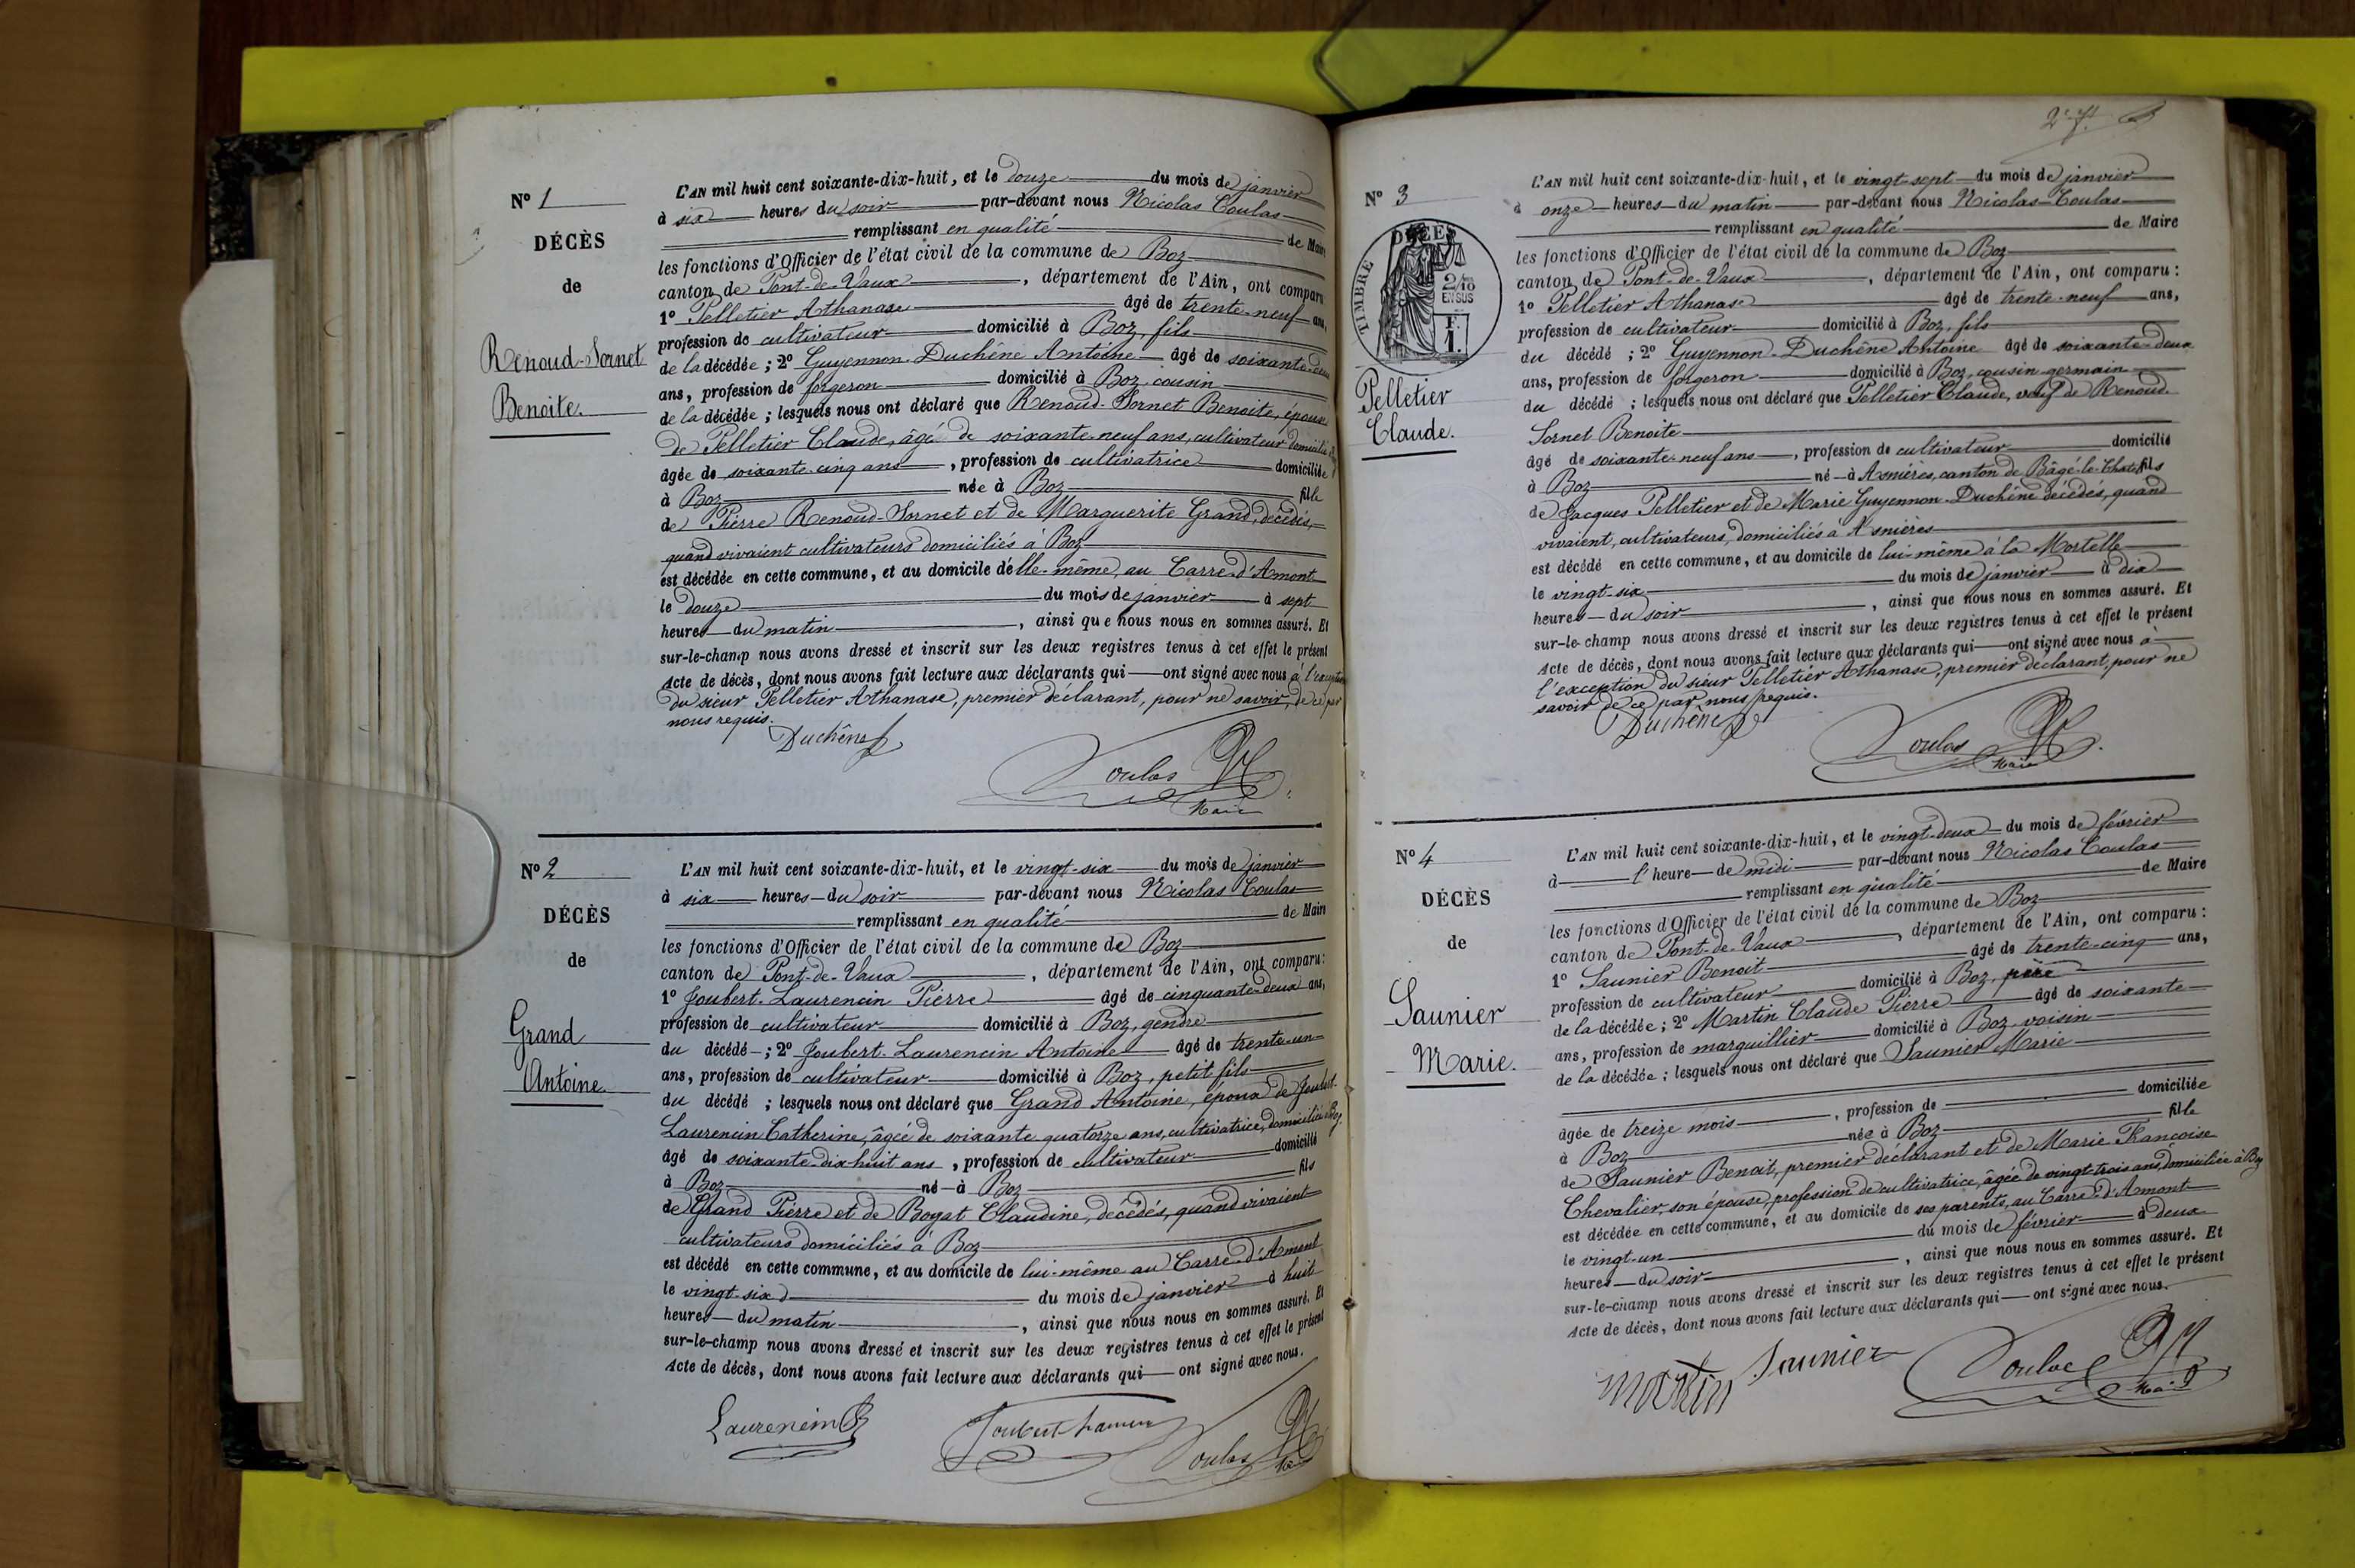 N° 1
DÉCÈS
de
Renoud-Sornet
Benoite.
L'AN mil huit cent soixante-dix-huit, et le douze du mois de janvier
à six heures du soir par-devant nous Nicolas Coulas
remplissant en qualité de Maire
les fonctions d'Officier de l'état civil de la commune de Boz
canton de Pont-de-Vaux, département de l'Ain, ont comparu
1° Pelletier Athanase âgé de trente-neuf ans,
profession de cultivateur domicilié à Boz, fils
de la décédée ; 2° Guyennon-Duchêne Antoine âgé de soixante-deux
ans, profession de forgeron domicilié à Boz, cousin
de la décédée ; lesquels nous ont déclaré que Renoud-Sornet Benoite, épouse
de Pelletier Claude, âgé de soixante-neuf ans, cultivateur domicilié
âgée de soixante-cinq ans, profession de cultivatrice domiciliée
à Boz née à Boz fille
de Pierre Renoud-Sornet et de Marguerite Grand, décédés,
quand vivaient cultivateurs domiciliés à Boz
est décédée en cette commune, et au domicile d'elle-même, au Carre-d'Amont
le douze du mois de janvier à sept
heures du matin, ainsi que nous nous en sommes assuré. Et
sur-le-champ nous avons dressé et inscrit sur les deux registres tenus à cet effet le présent
Acte de décès, dont nous avons fait lecture aux déclarants qui ont signé avec nous à l'exception
du sieur Pelletier Athanase, premier déclarant, pour ne savoir, de ce par
nous requis.
Duchêne
Coulas
Maire
N° 2
DÉCÈS
de
Grand
Antoine.
L'AN mil huit cent soixante-dix-huit, et le vingt-six du mois de janvier
à six heures du soir par-devant nous Nicolas Coulas
remplissant en qualité de Maire
les fonctions d'Officier de l'état civil de la commune de Boz
canton de Pont-de-Vaux, département de l'Ain, ont comparu :
1° Joubert-Laurencin Pierre âgé de cinquante-deux ans,
profession de cultivateur domicilié à Boz, gendre
du décédé ; 2° Joubert-Laurencin Antoine âgé de trente-un
ans, profession de cultivateur domicilié à Boz, petit fils
du décédé ; lesquels nous ont déclaré que Grand Antoine, époux de Joubert-
Laurencin Catherine, âgée de soixante quatorze ans, cultivatrice, domiciliée à Boz.
âgé de soixante-dix-huit ans, profession de cultivateur domicilié
à Boz né à Boz fils
de Grand Pierre et de Boyat Claudine, décédés, quand vivaient
cultivateurs domiciliés à Boz
est décédé en cette commune, et au domicile de lui-même au Carre-d'Amont
le vingt-six du mois de janvier à huit
heures du matin, ainsi que nous nous en sommes assuré. Et
sur-le-champ nous avons dressé et inscrit sur les deux registres tenus à cet effet le présent
Acte de décès, dont nous avons fait lecture aux déclarants qui ont signé avec nous.
Laurencin
Joubert
Coulas
N° 3
DÉCÈS
TIMBRE
2/10
EN SUS
Pelletier
Claude.
L'AN mil huit cent soixante-dix-huit, et le vingt-sept du mois de janvier
à onze heures du matin par-devant nous Nicolas Coulas
remplissant en qualité de Maire
les fonctions d'Officier de l'état civil de la commune de Boz
canton de Pont-de-Vaux, département de l'Ain, ont comparu :
1° Pelletier Athanase âgé de trente-neuf ans,
profession de cultivateur domicilié à Boz, fils
du décédé ; 2° Guyennon-Duchêne Antoine âgé de soixante-deux
ans, profession de forgeron domicilié à Boz, cousin germain
du décédé ; lesquels nous ont déclaré que Pelletier Claude, veuf de Renoud-
Sornet Benoite
âgé de soixante-neuf ans, profession de cultivateur domicilié
à Boz né à Asnières, canton de Bâgé-le-Chatel fils
de Jacques Pelletier et de Marie Guyennon-Duchêne décédés, quand
vivaient, cultivateurs, domiciliés à Asnières
est décédé en cette commune, et au domicile de lui-même à la Mortelle
le vingt-six du mois de janvier à dix
heures du soir, ainsi que nous nous en sommes assuré. Et
sur-le-champ nous avons dressé et inscrit sur les deux registres tenus à cet effet le présent
Acte de décès, dont nous avons fait lecture aux déclarants qui ont signé avec nous à
l'exception du sieur Pelletier Athanase, premier déclarant, pour ne
savoir de ce par nous requis.
Duchêne
Coulas
Maire
N° 4
DÉCÈS
de
Saunier
Marie.
L'AN mil huit cent soixante-dix-huit, et le vingt-deux du mois de février
à l'heure de midi par-devant nous Nicolas Coulas
remplissant en qualité de Maire
les fonctions d'Officier de l'état civil de la commune de Boz
canton de Pont-de-Vaux, département de l'Ain, ont comparu :
1° Saunier Benoit âgé de trente-cinq ans,
profession de cultivateur domicilié à Boz, père
de la décédée ; 2° Martin Claude Pierre âgé de soixante
ans, profession de marguillier domicilié à Boz, voisin
de la décédée ; lesquels nous ont déclaré que Saunier Marie
âgée de treize mois, profession de domiciliée
à Boz née à Boz fille
de Saunier Benoit, premier déclarant et de Marie Francoise
Chevalier, son épouse, profession de cultivatrice, âgée de vingt-trois ans, domiciliée à Boz
est décédée en cette commune, et au domicile de ses parents, au Carre-d'Amont
le vingt-un du mois de février à deux
heures du soir, ainsi que nous nous en sommes assuré. Et
sur-le-champ nous avons dressé et inscrit sur les deux registres tenus à cet effet le présent
Acte de décès, dont nous avons fait lecture aux déclarants qui ont signé avec nous.
Martin Saunier
Coulas
Maire